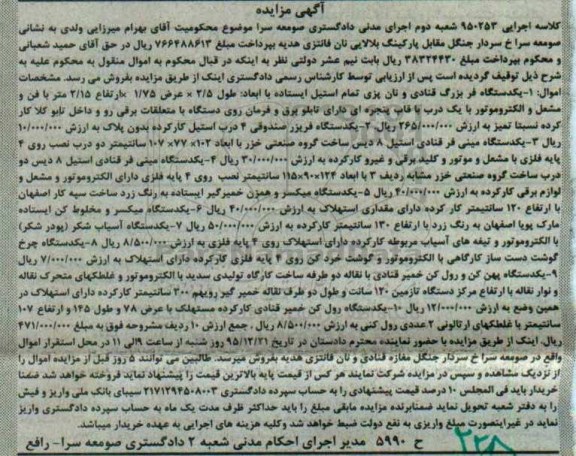 آگهی مزایده
کلاسه اجرایی ۹۵۰۲۵۳ شعبه دوم اجرای مدنی دادگستری صومعه سرا موضوع محکومیت آقای بهرام میرزایی ولدی به نشانی
صومعه سرا خ سردار جنگل مقابل پارکینگ بلالایی نان فانتزی هدیه بپرداخت مبلغ ۷۶۶۴۸۸۶۱۳ ریال در حق آقای حمید شعبانی
و محکوم بپرداخت مبلغ ۳۸۳۲۴۴۳۰ ریال بابت نیم عشر دولتی نظر به اینکه در قبال محکوم به اموال منقول به محکوم علیه به
شرح ذیل توقیف گردیده است پس از ارزیابی توسط کارشناس رسمی دادگستری اینک از طریق مزایده بفروش می رسد. مشخصات
اموال: ۱-یکدستگاه فر بزرگ قنادی و نان پزی تمام استیل ایستاده با ابعاد: طول ۲/۵ × عرض ۱/۷۵ ×ارتفاع ۲/۱۵ متر با فن و
مشعل و الکتروموتور با یک درب با قاب پنجره ای دارای تابلو برق و فرمان روی دستگاه با متعلقات برقی رو و داخل تابو کلا کار
کرده نسبتا تمیز به ارزش ۲۶۵/۰۰۰/۰۰۰ ریال. ۲-یکدستگاه فریزر صندوقی ۴ درب استیل کارکرده بدون پلاک به ارزش ۱۰/۰۰۰/۰۰۰
ریال ۳-یکدستگاه مینی فر قنادی استیل ۸ دیس ساخت گروه صنعتی خزر با ابعاد ۱۰۲× ۷۷× ۱۰۷ سانتیمتر دو درب نصب روی ۴
پایه فلزی با مشعل و موتور و کلید برقی و غیرو کارکرده به ارزش ۳۰/۰۰۰/۰۰۰ ریال ۴-یکدستگاه مینی فر قنادی استیل ۸ دیس دو
درب ساخت گروه صنعتی خزر مشابه ردیف ۳ با ابعاد ۱۲۴×۹۰×۱۱۵ سانتیمتر نصب روی ۴ پایه فلزی دارای الکتروموتور و مشعل و
لوازم برقی کارکرده به ارزش ۴۰/۰۰۰/۰۰۰ ریال ۵-یکدستگاه میکسر و همزن خمیرگیر ایستاده به رنگ زرد ساخت سپه کار اصفهان
با ارتفاع ۱۲۰ سانتیمتر کار کرده دارای مقداری استهلاک به ارزش ۴۰/۰۰۰/۰۰۰ ریال ۶-یکدستگاه میکسر و مخلوط کن ایستاده
مارک پویا اصفهان به رنگ زرد با ارتفاع ۱۳۰ سانتیمتر کارکرده به ارزش ۵۰/۰۰۰/۰۰۰ ریال ۷-یکدستگاه آسیاب شکر (پودر شکر)
با الکتروموتور و تیغه های آسیاب مربوطه کارکرده دارای استهلاک روی ۴ پایه فلزی به ارزش ۸/۵۰۰/۰۰۰ ریال ۸-یکدستگاه چرخ
گوشت دست ساز کارگاهی با الکتروموتور و گوشت خرد کن روی ۴ پایه فلزی کارکرده دارای استهلاک به ارزش ۷/۰۰۰/۰۰۰ ریال
۹-یکدستگاه پهن کن و رول کن خمیر قنادی با نقاله دو طرفه ساخت کارگاه تولیدی سدید با الکتروموتور و غلطکهای متحرک نقاله
و نوار نقاله با ارتفاع مرکز دستگاه تازمین ۱۲۰ سانت و طول دو طرف نقاله خمیر گیر رویهم ۳۰۰ سانتیمتر کارکرده دارای استهلاک در
همین وضع به ارزش ۱۲/۰۰۰/۰۰۰ ریال ۱۰-یکدستگاه رول کن خمیر قنادی کارکرده مستهلک با عرض ۷۸ و طول ۱۴۵ و ارتفاع ۱۰۷
سانتیمتر با غلطکهای ارتالونی ۲ عددی رول کنی به ارزش ۸/۵۰۰/۰۰۰ ریال. جمع ارزش ۱۰ ردیف مشروحه فوق به مبلغ ۴۷۱/۰۰۰/۰۰۰
ریال. اینک از طریق مزایده با حضور نماینده محترم دادستان در تاریخ ۹۵/۱۲/۲۱ روز شنبه از ساعت ۹الی ۱۱ در محل استقرار اموال
واقع در صومعه سرا خ سردار جنگل مغازه قنادی و نان فانتزی هدیه بفروش میرسد. طالبین می توانند ۵ روز قبل از مزایده اموال را
از نزدیک مشاهده و سپس در مزایده شرکت نمایند هر کس از قیمت پایه بالاترین قیمت را پیشنهاد نماید فروخته خواهد شد ضمنا
خریدار باید فی المجلس ۱۰ درصد قیمت پیشنهادی را به حساب سپرده دادگستری ۲۱۷۱۲۹۴۵۰۸۰۰۳ سیبای بانک ملی واریز و فیش
را به دفتر شعبه تحویل نماید ضمنابرنده مزایده مابقی مبلغ را باید حداکثر ظرف مدت یک ماه به حساب سپرده دادگستری واریز
نماید در غیراینصورت مبلغ واریزی به نفع دولت ضبط خواهد شد وکلیه هزینه های اجرایی به عهده خریدار میباشد.
ح ۵۹۹۰ مدیر اجرای احکام مدنی شعبه ۲ دادگستری صومعه سرا- رافع
۲۲۸